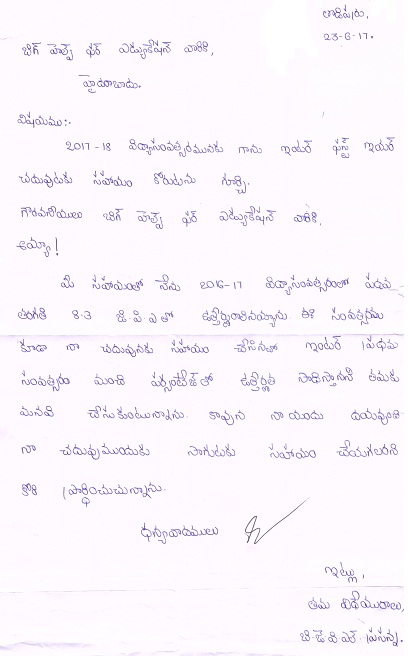 తాడిపురు,
23-6-17.
బిగ్ హెల్ప్ ఫర్ ఎడ్యుకేషన్ వారికి,
హైదరాబాదు.
విషయము:-
2017-18 విద్యాసంవత్సరమునకు గాను ఇంటర్ ఫస్ట్ ఇయర్
చదువుటకు సహాయం కోరుటను గూర్చి.
గౌరవనీయులు బిగ్ హెల్ప్ ఫర్ ఎడ్యుకేషన్ వారికి,
అయ్యా!
మీ సహాయంతో నేను 2016-17 విద్యాసంవత్సరంలో పదవ
తరగతి 8.3 జి.పి.ఎ తో ఉత్తీర్ణురాలినయ్యాను. ఈ సంవత్సరము
కూడా నా చదువునకు సహాయం చేసినచో ఇంటర్ ప్రథమ
సంవత్సరం మంచి పర్సంటేజ్ తో ఉత్తీర్ణత సాధిస్తానని తమకు
మనవి చేసుకుంటున్నాను. కావున నా యందు దయవుంచి
నా చదువుముందుకు సాగుటకు సహాయం చేయగలరని
కోరి ప్రార్థించుచున్నాను.
ధన్యవాదములు
ఇట్లు,
తమ విధేయురాలు,
ప్రసన్న.